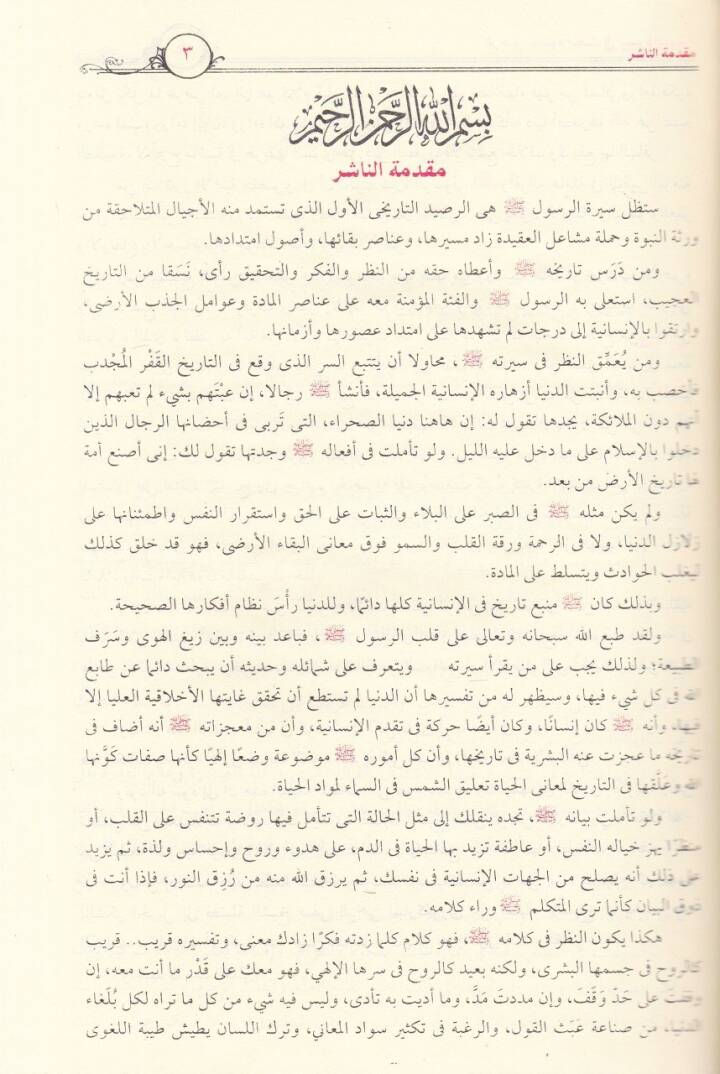 مقدمة الناشر
٣
بسم الله الرحمن الرحيم
مقدمة الناشر
ستظل سيرة الرسول ﷺ هى الرصيد التاريخى الأول الذى تستمد منه الأجيال المتلاحقة من
ورثة النبوة وحملة مشاعل العقيدة زاد مسيرها، وعناصر بقائها، وأصول امتدادها.
ومن دَرَس تاريخه ﷺ وأعطاه حقه من النظر والفكر والتحقيق رأى، نَسَقا من التاريخ
العجيب، استعلى به الرسول ﷺ والفئة المؤمنة معه على عناصر المادة وعوامل الجذب الأرضى،
وارتقوا بالإنسانية إلى درجات لم تشهدها على امتداد عصورها وأزمانها.
ومن يُعَمِّق النظر فى سيرته ﷺ، محاولا أن يتتبع السر الذى وقع فى التاريخ القَفْر المُجْدب
فأخصب به، وأنبتت الدنيا أزهاره الإنسانية الجميلة، فأنشأ ﷺ رجالا، إن عبْتَهم بشيء لم تعبهم إلا
أنهم دون الملائكة، يجدها تقول له: إن هاهنا دنيا الصحراء، التى تَربى فى أحضانها الرجال الذين
دخلوا بالإسلام على ما دخل عليه الليل. ولو تأملت فى أفعاله ﷺ وجدتها تقول لك: إنى أصنع أمة
لها تاريخ الأرض من بعد.
ولم يكن مثله ﷺ فى الصبر على البلاء والثبات على الحق واستقرار النفس واطمئنانها على
زلازل الدنيا، ولا فى الرحمة ورقة القلب والسمو فوق معانى البقاء الأرضى، فهو قد خلق كذلك
ليغلب الحوادث ويتسلط على المادة.
وبذلك كان ﷺ منبع تاريخ فى الإنسانية كلها دائمًا، وللدنيا رأسَ نظام أفكارها الصحيحة.
ولقد طبع الله سبحانه وتعالى على قلب الرسول ﷺ، فباعد بينه وبين زيغ الهوى وسَرَف
الطبيعة؛ ولذلك يجب على من يقرأ سيرته ويتعرف على شمائله وحديثه أن يبحث دائما عن طابع
الله فى كل شيء فيها، وسيظهر له من تفسيرها أن الدنيا لم تستطع أن تحقق غايتها الأخلاقية العليا إلا
فيها، وأنه ﷺ كان إنسانًا، وكان أيضًا حركة فى تقدم الإنسانية، وأن من معجزاته ﷺ أنه أضاف فى
تاريخه ما عجزت عنه البشرية فى تاريخها، وأن كل أموره ﷺ موضوعة وضعًا إلهيًا كأنها صفات كَوَّنها
الله وعَلَّقها فى التاريخ لمعانى الحياة تعليق الشمس فى السماء لمواد الحياة.
ولو تأملت بيانه ﷺ، تجده ينقلك إلى مثل الحالة التى تتأمل فيها روضة تتنفس على القلب، أو
منظرًا يهز خياله النفس، أو عاطفة تزيد بها الحياة فى الدم، على هدوء وروح وإحساس ولذة، ثم يزيد
على ذلك أنه يصلح من الجهات الإنسانية فى نفسك، ثم يرزق الله منه من رُزِق النور، فإذا أنت فى
ذوق البيان كأنما ترى المتكلم ﷺ وراء كلامه.
هكذا يكون النظر فى كلامه ﷺ، فهو كلام كلما زدته فكرًا زادك معنى، وتفسيره قريب.. قريب
كالروح فى جسمها البشرى، ولكنه بعيد كالروح فى سرها الإلهي، فهو معك على قَدْر ما أنت معه، إن
وقفتَ على حَدّ وَقَّفَ، وإن مددتَ مَدَّ، وما أديت به تأدى، وليس فيه شيء من كل ما تراه لكل بُلَغاء
الدنيا، من صناعة عَبَث القول، والرغبة فى تكثير سواد المعاني، وترك اللسان يطيش طيبة اللغوى